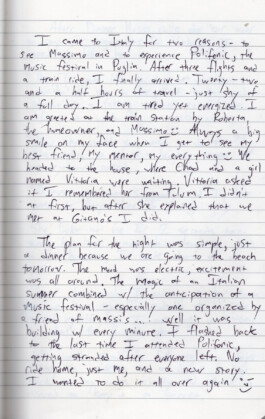 I came to Italy for two reasons - to
see Massimo and to experience Polifonic, the
music festival in Puglia. After three flights and
a train ride, I finally arrived. Twenty - two
and a half hours of travel - just shy of
a full day. I am tired yet energized. I
am greeted at the train station by Roberta,
the homeowner, and Massimo. Always a big
smile on my face when I get to see my
best friend, my mentor, my everything. We
headed to the house, where Chad and a girl
named Vittoria were waiting. Vittoria asked
if I remembered her from Tulum. I didn't
at first, but after she explained that we
met at Gitano's I did.
The plan for the night was simple, just
a dinner because we are going to the beach
tomorrow. The mood was electric, excitement
was all around. The magic of an Italian
summer combined w/ the anticipation of a
music festival - especially one organized by
a friend of Massi's... well it was
building w/ every minute. I flashed back
to the last time I attended Polifonic,
getting stranded after everyone left. No
ride home, just me, and a new story.
I wanted to do it all over again